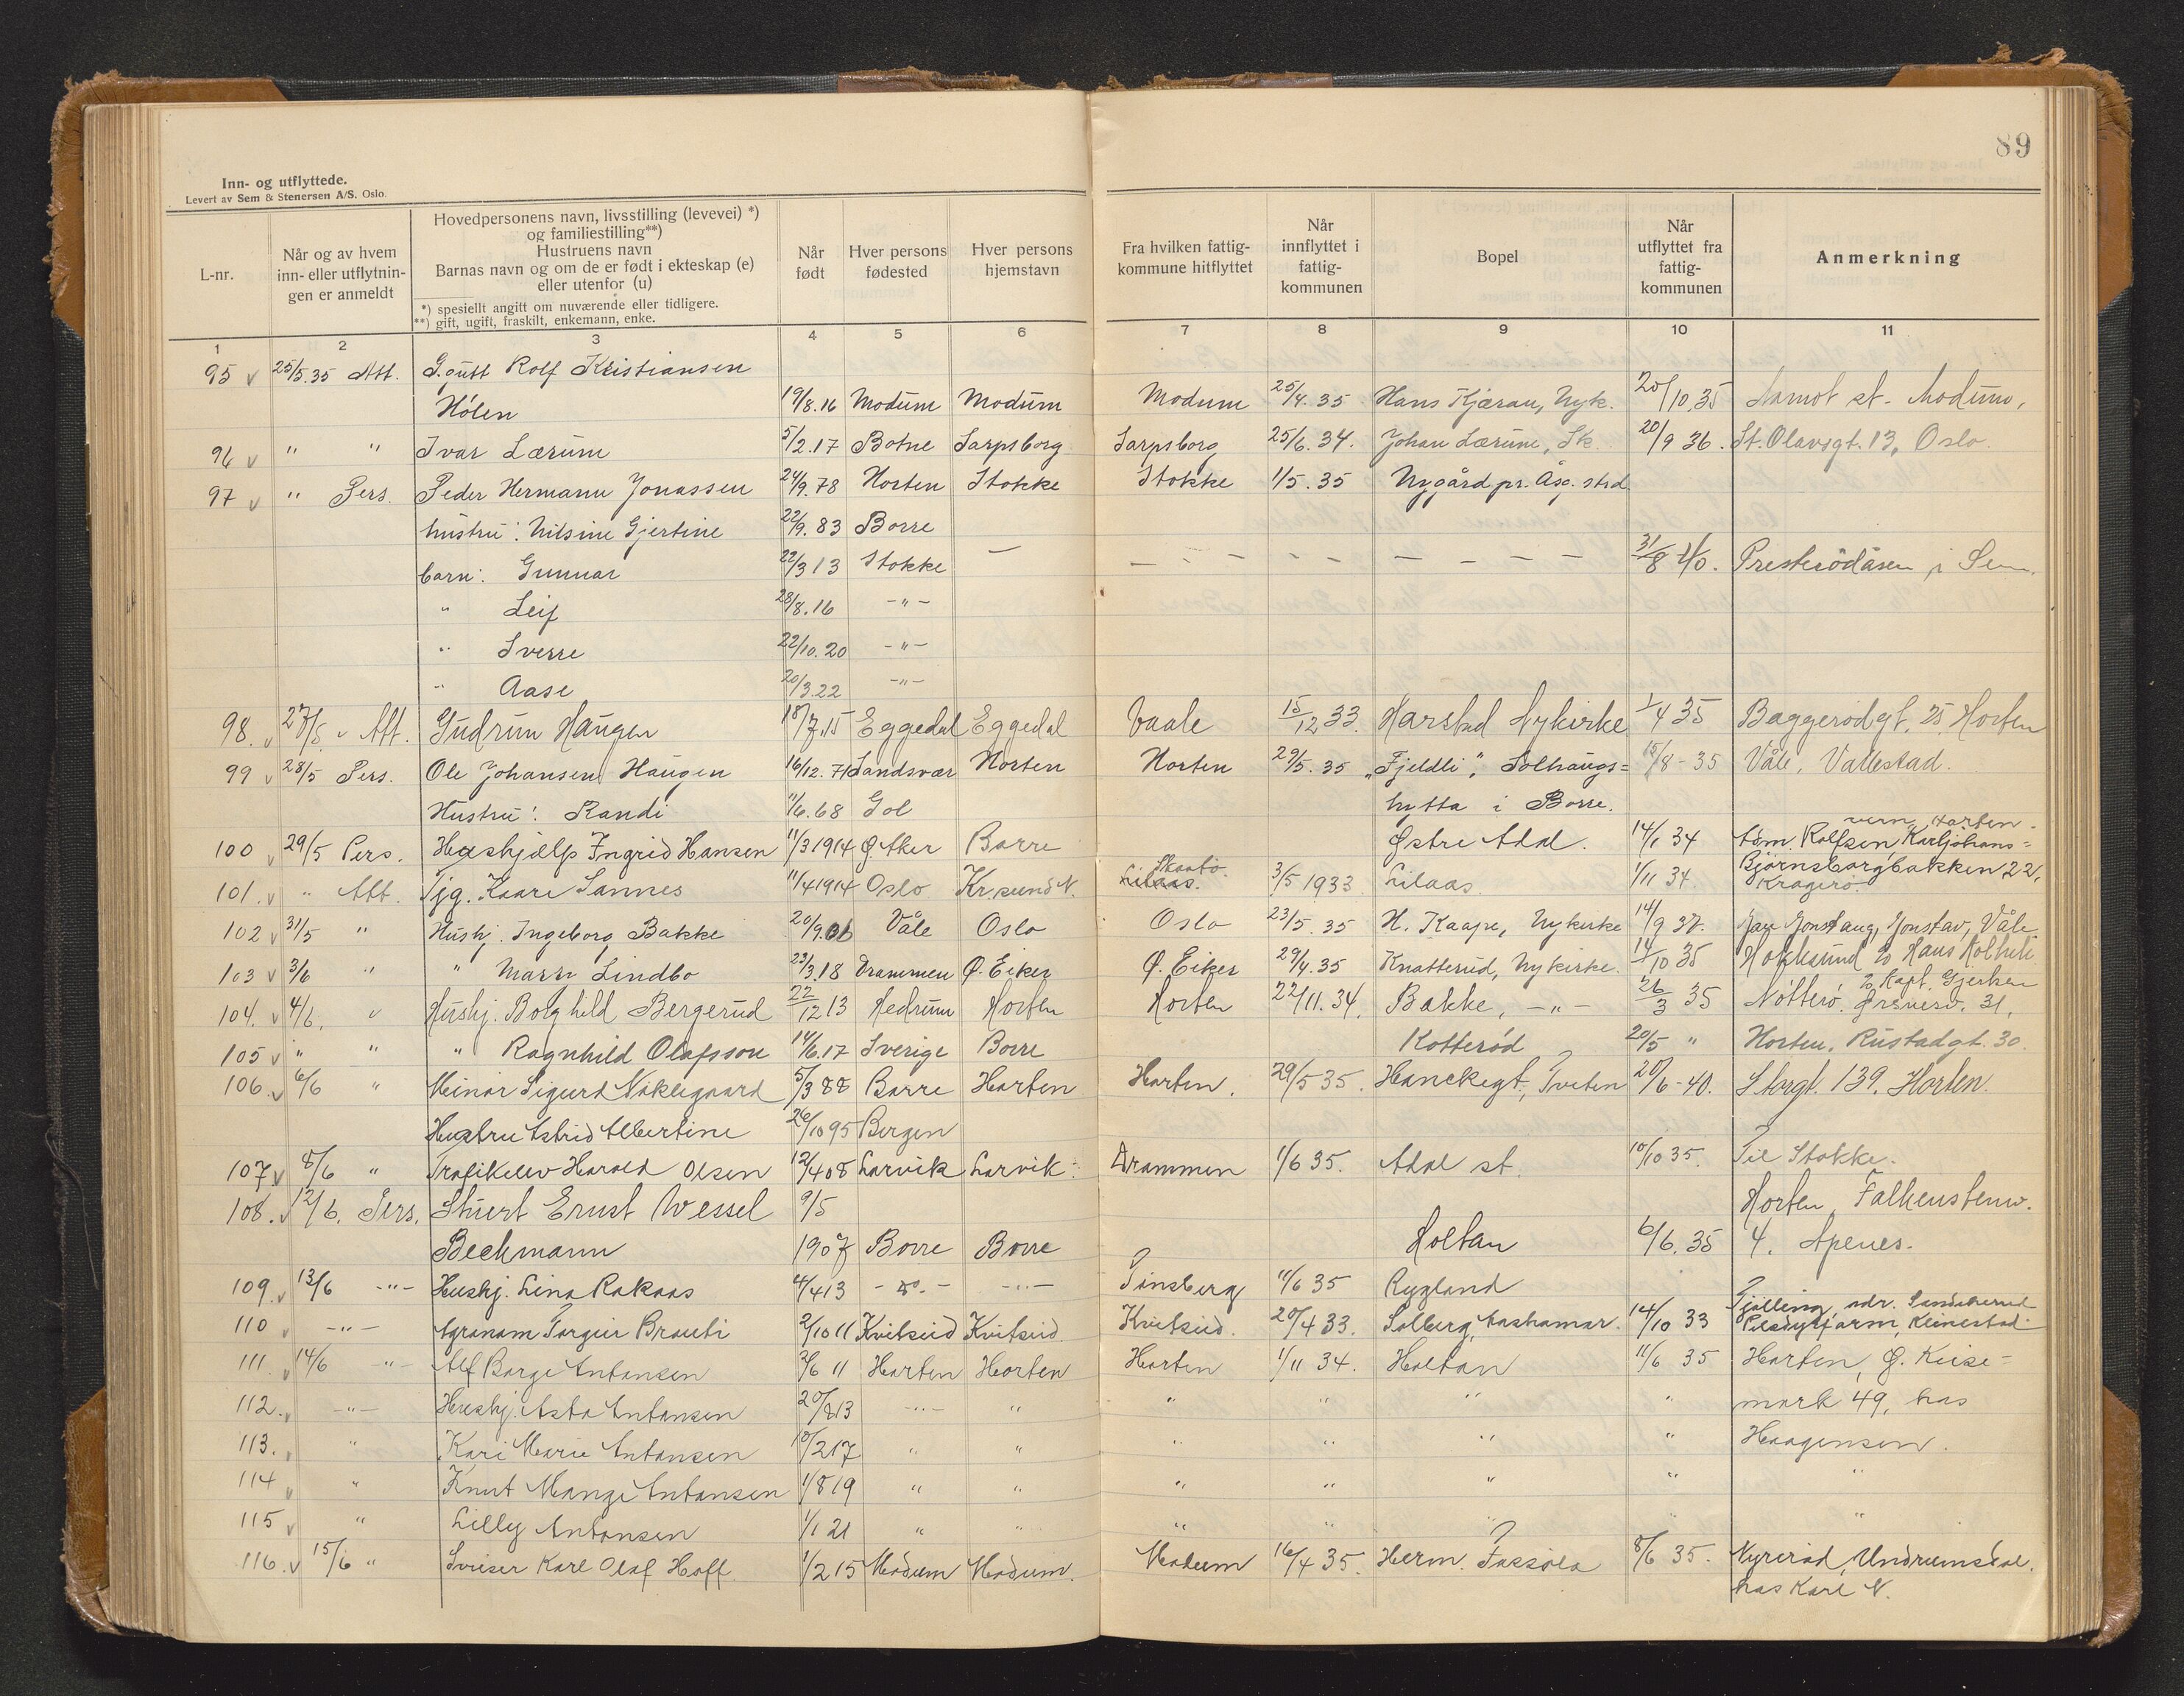 89
Inn- og utflyttede.
Levert av Sem & Stenersen A/S. Oslo.
L-nr.
Når og av hvem inn- eller utflytnin- gen er anmeldt
Hovedpersonens navn, livsstilling (levevei) *) og familiestilling**) Hustruens navn Barnas navn og om de er født i ekteskap (e) eller utenfor (u)
*) spesiellt angitt om nuværende eller tidligere.
**) gift, ugift, fraskilt, enkemann, enke.
Når født
Hver persons fødested
Hver persons hjemstavn
Fra hvilken fattig- kommune hitflyttet
Når innflyttet i fattig- kommunen
Bopel
Når utflyttet fra fattig- kommunen
Anmerkning
1 2 3 4 5 6 7 8 9 10 11
95 25/5.35 Att. G.gutt Rolf Kristiansen
Hólen 19/8.16 Modum Modum Modum 25/4.35 Hans Kjæran, Nyk. 20/10.35 Aamot st. Modum.
96 " " Ivar Lærum 5/2.17 Botne Sarpsborg Sarpsborg 25/6.34. Johan Lærum, Sk. 20/9 36. St. Olavsgt. 13, Oslo
97 " Pers. Peder Hermann Jonassen 24/9.78 Horten Stokke Stokke 1/5.35 Nygård pr. Åsg. strd.
hustru: Nilsine Gjertine 22/9.83 Borre
barn: Gunnar 22/3 13 Stokke — — — — — — — — 31/8 40. Presterödåsen i Sem.
" Leif 28/8.16 -"-
" Sverre 22/10.20 -"-
" Aase 20/3.22 -"-
98. 27/5. " Att. Gudrun Haugen 18/7.15 Eggedal Eggedal Vaale 15/12 33. Harstad Nykirke 1/4 35 Baggerödgt. 25 Horten
99 28/5 Pers. Ole Johansen Haugen 16/12.71 Sandsvær Horten Horten 29/5.35 "Fjeldli", Solhaugs= 15/8-35 Våle, Vallestad.
Hustru: Randi 11/6.68 Gol hytta i Borre.
vern, Horten.
100 29/5 Pers. Hushjelp Ingrid Hansen 11/3 1914 Ø. Aker Borre Østre Adal. 14/1 34 Adm. Rolfsen Karljohans=
101. " Att. Tjg. Kaare Sannes 11/4 1914 Oslo Kr.sund N. Lilaas. Skaatö. 3/5 1933 Lilaas. 1/11 34. Björnsborgbakken 22, Kragerö.
102 31/5 " Hushj. Ingeborg Bakke 20/9.06 Våle Oslo Oslo 23/5.35 H. Kaape, Nykirke 14/9 37. Jonstang, Jonstad, Våle
103 3/6 " " Marry Lindbo 23/3.18 Drammen Ø. Eiker Ø. Eiker 29/4.35 Knatterud, Nykirke. 14/10 35 Hokksund
104. 4/6. " Hushj. Borghild Bergerud 22/12 13 Hedrum Horten Horten 22/11.34. Bakke, -"- 26/3 35 Nötterö. Örsnesv. 31. Kapt. Gjerken
105 " " " Ragnhild Olafsson 14/6.17 Sverige Borre Kotteröd 20/5 " Horten. Rustadgt. 30.
106. 6/6 " Meinar Sigurd Naklegaard 5/3 88 Borre Horten Horten. 29/5 35. Hanckegt, Tveten 20/6-40. Storgt. 139. Horten.
Hustru Astrid Albertine 26/10 95 Bergen
107 8/6 " Trafikelev Harald Olsen 12/4 08 Larvik Larvik Drammen 1/6 35. Adal st. 10/10 35. Til Stokke.
108. 12/6. Pers. Stuert Ernst Wessel 9/5 Horten Falkenstenv.
Bechmann 1907 Borre Borre Holtan 6/6.35 4. Apenes.
109 13/6 -"- Hushj. Lina Rakaas 4/4 13 - do - -"- Tönsberg 11/6 35 Rygland
110 -"- Agronom Torgeir Brauti 2/10 11 Kvitseid Kvitseid Kvitseid. 20/4 33. Solberg, Aashamar. 14/10 33 Tjölling, adr. Sandakerud Pelsdyrfarm, Kleinestad
111. 14/6 -"- Alf Borge Antonsen 3/6 11 Horten Horten Horten 1/11 34. Holtan 11/6 35 Horten, Ø. Keise=
112. -"- Hushj. Asta Antonsen 20/8 13 -"- " " " " " mark 49, hos
113. " Kari Marie Antonsen 10/2 17 " " " " " " Haagensen.
114 " Knut Mange Antonsen 1/8 19 " " " " " " "
115 " Lilly Antonsen 1/1 21 " " " " " " "
116. 15/6 " Sveiser Karl Olaf Hoff 1/2 15 Modum Modum. Modum 16/4 35. Herm. Fossöla 8/6 35. Nyreröd, Undrumsdal. hos Karl N.